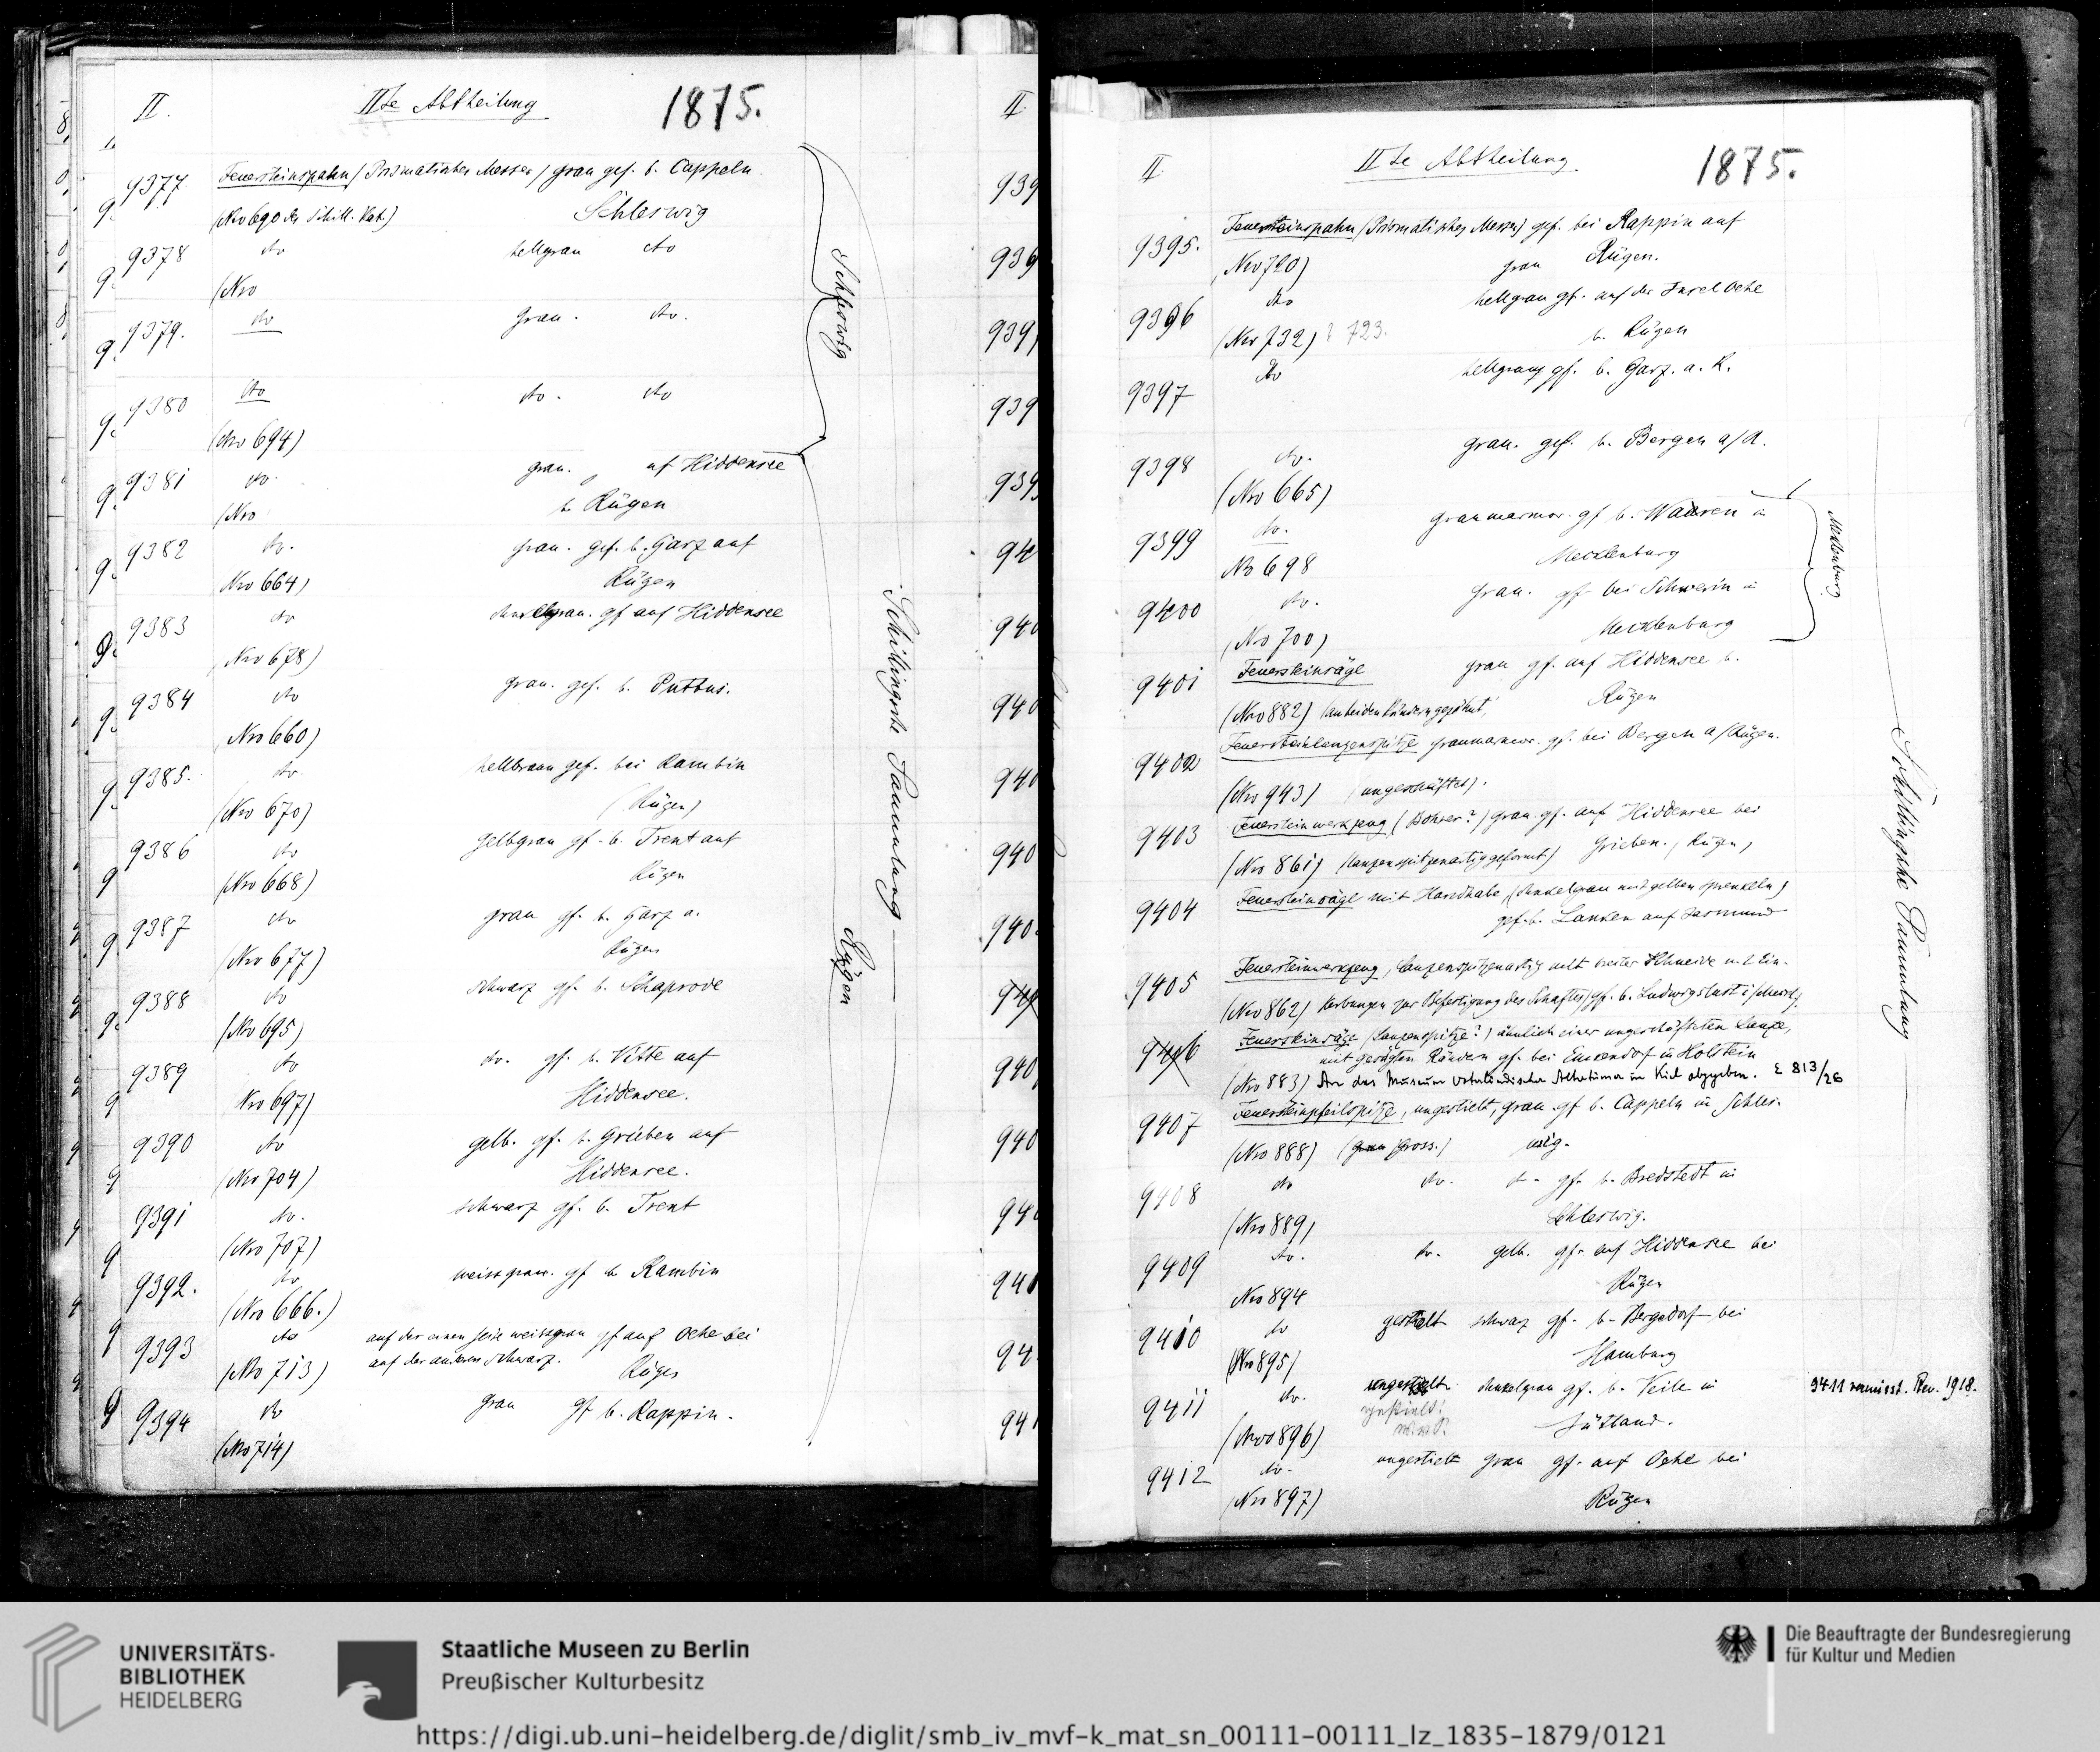 II.
IIte Abtheilung
1875.
9377
Feuersteinspahn (Prismatisches Messer) grau gef. b. Cappeln
(Nro 690 des Schill. Kat.)
Schleswig
9378
do
hellgrau do
(Nro
9379.
do
grau. do.
9380
do
do. do
(Nro 694)
9381
do.
grau. auf Hiddensee
(Nro
b. Rügen
9382
do.
grau. gef. b. Garz auf
Nro 664)
Rügen
9383
do
dunkelgrau. gf auf Hiddensee
Nro 678)
9384
do
grau. gef. b. Putbus.
Nro 660)
9385.
do.
hellbraun gef. bei Rambin
(Nro 670)
(Rügen)
9386
do
gelbgrau gf. b. Trent auf
(Nro 668)
Rügen
9387
do
grau gf. b. Garz a.
(Nro 677)
Rügen
9388
do
schwarz gf. b. Schaprode
(Nro 695)
9389
do
do. gf. b. Vitte auf
Nro 697)
Hiddensee.
9390
do
gelb. gf. b. Grieben auf
(Nro 704)
Hiddensee.
9391
do.
schwarz gf. b. Trent
(Nro 707)
9392.
do
weissgrau. gf b Rambin
(Nro 666.)
9393
do
auf der einen Seite weissgrau gf auf Oehe bei
(Nro 713)
auf der anderen schwarz.
Rügen
9394
do
grau gf b. Rappin.
(Nro 714)
Schleswig
Rügen
Schillingsche Sammlung
II
IIte Abtheilung
1875.
9395.
Feuersteinspahn (Prismatisches Messer) gef. bei Rappin auf
Nro 720)
grau Rügen.
9396
do
hellgrau gf. auf der Insel Oehe
(Nro 732) ? 723.
b. Rügen
9397
do
hellgrau gf. b. Garz. a. R.
9398
do.
grau. gef. b. Bergen a/R.
(Nro 665)
9399
do.
graumarmor. gf b. Waaren in
No 698
Mecklenburg
9400
do.
grau. gf bei Schwerin in
(Nro 700)
Mecklenburg
9401
Feuersteinsäge grau gf. auf Hiddensee b.
(Nro 882) (an beiden Rändern gezähnt)
Rügen
9402
Feuersteinlanzenspitze graumarmor. gf. bei Bergen a/Rügen.
(Nro 943) (ungeschäftet).
9403
Feuersteinwerkzeug (Bohrer?) grau gf. auf Hiddensee bei
(Nro 861) (lanzenspitzenartig geformt) Grieben. (Rügen)
9404
Feuersteinsäge mit Handhabe, (dunkelgrau mit gelben Sprenkeln)
gef. b. Lanken auf Jasmund
9405
Feuersteinwerkzeug, lanzenspitzenartig mit breiter Schneide u. 2 Ein-
(Nro 862) kerbungen zur Befestigung des Schaftes) gf. b. Ludwigslust i/Meckl.
9406
Feuersteinsäge (Lanzenspitze?) ähnlich einer ungeschäfteten Lanze,
mit gesägten Rändern gf. bei Emkendorf in Holstein
(Nro 883) An das Museum vaterländischer Altertümer in Kiel abgegeben. E 813/26
9407
Feuersteinpfeilspitze, ungestielt, grau gf b. Cappeln in Schles-
(Nro 888) (gross.)
wig.
9408
do do. do gf. b. Bredstedt in
(Nro 889)
Schleswig.
9409
do. do. gelb. gf. auf Hiddensee bei
Nro 894
Rügen
9410
do gestielt schwarz gf. b. Bergedorf bei
(Nro 895)
Hamburg
9411
do. ungestielt dunkelgrau gf. b. Veile in
gestielt!
(Nro 896)
Jütland.
9411 vermisst. Rev. 1918.
9412
do. ungestielt grau gf. auf Oehe bei
(Nro 897)
Rügen
Mecklenburg
Schillingsche Sammlung
UNIVERSITÄTS-
BIBLIOTHEK
HEIDELBERG
Staatliche Museen zu Berlin
Preußischer Kulturbesitz
Die Beauftragte der Bundesregierung
für Kultur und Medien
https://digi.ub.uni-heidelberg.de/diglit/smb_iv_mvf-k_mat_sn_00111-00111_lz_1835-1879/0121